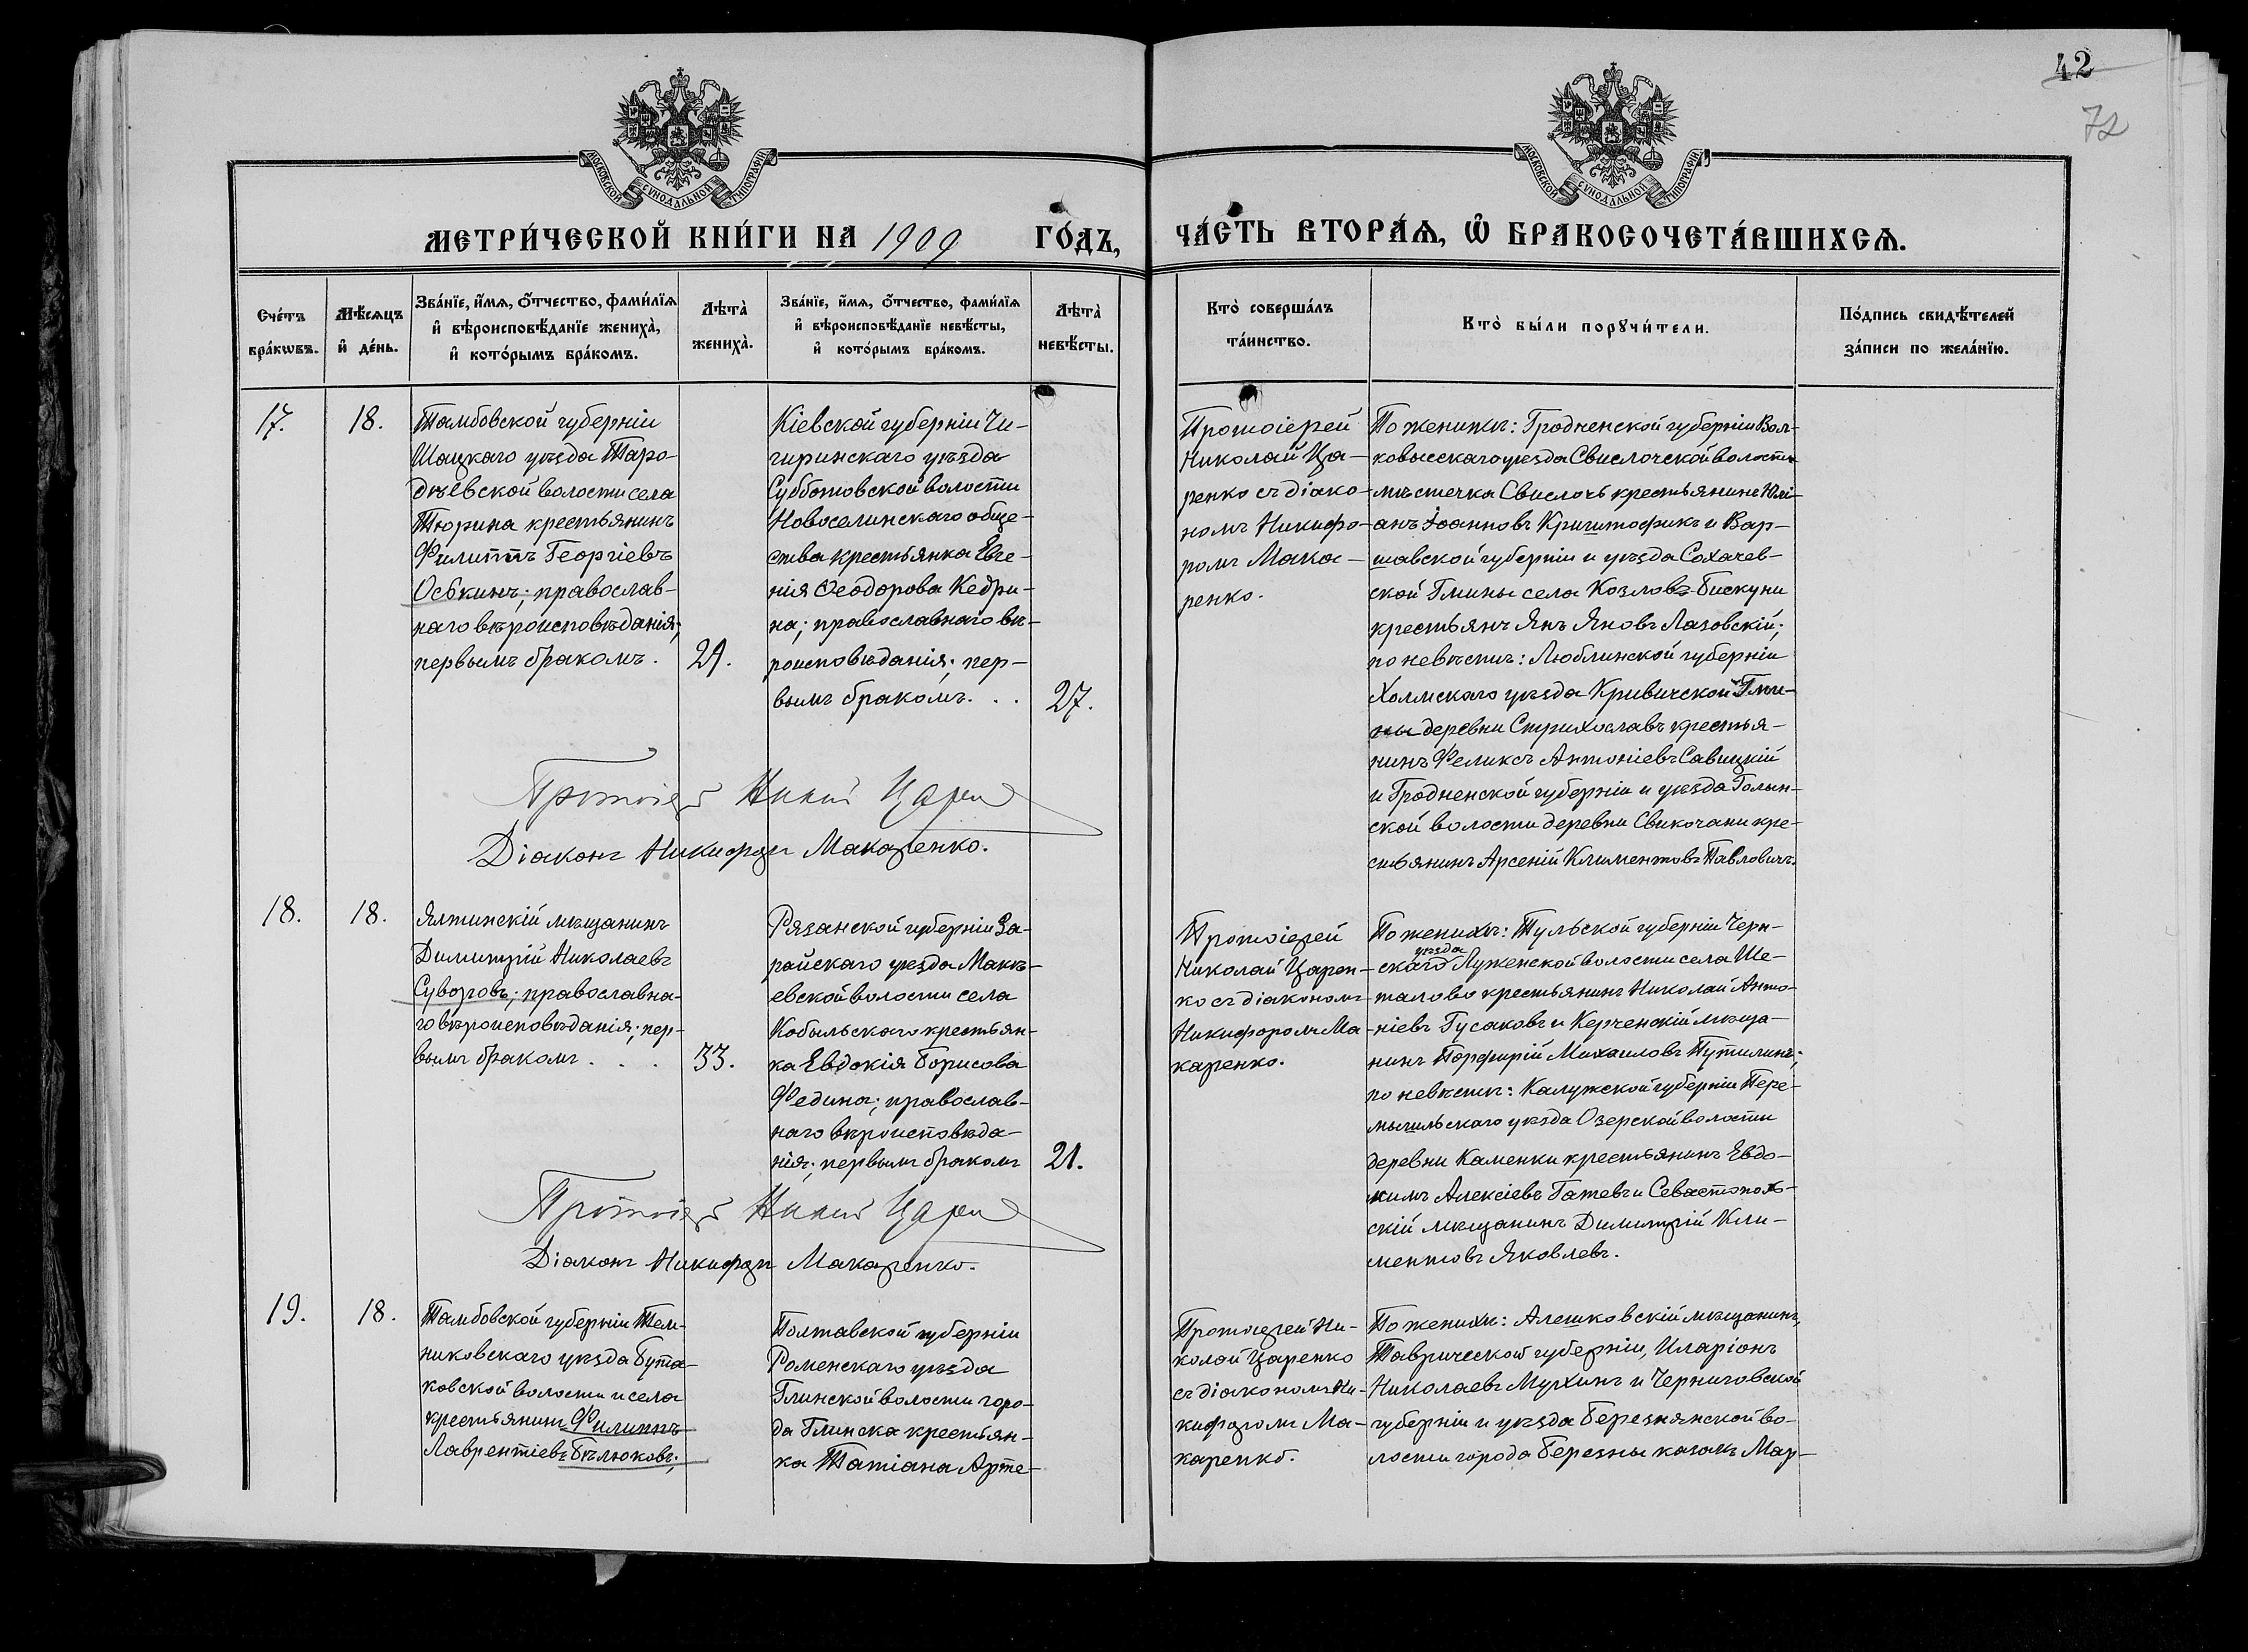 42
72
МОСКОВСКОЙ СУНОДАЛЬНОЙ ТИПОГРАФІИ
МОСКОВСКОЙ СУНОДАЛЬНОЙ ТИПОГРАФІИ
МЕТРИ́ЧЕСКОЙ КНИ́ГИ НА 1909 ГО́ДЪ,
ЧА́СТЬ ВТОРА́Ѧ, Ѽ БРАКОСОЧЕТА́ВШИХСѦ.
Сче́тъ
бра́кѡвъ.
Мѣ́сѧцъ
и҆ де́нь.
Зва́нїе, и҆́мѧ, ѻ҆́тчество, фами́лїѧ
и҆ вѣроисповѣ́данїе жениха̀,
и҆ кото́рымъ бра́комъ.
Лѣта̀
жениха̀.
Зва́нїе, и҆́мѧ, ѻ҆́тчество, фами́лїѧ
и҆ вѣроисповѣ́данїе невѣ́сты,
и҆ кото́рымъ бра́комъ.
Лѣта̀
невѣ́сты.
Кто̀ соверша́лъ
та́инство.
Кто̀ бы́ли порꙋчи́тели.
По́дпись свидѣ́телей
за́писи по жела́нїю.
17.
18.
Тамбовской губерніи
Шацкаго уѣзда Таро-
дѣевской волости села
Тюрина крестьянинъ
Филиппъ Георгіевъ
Оськинъ; православ-
наго вѣроисповѣданія;
первымъ бракомъ.
29.
Кіевской губерніи Чи-
гиринскаго уѣзда
Субботовской волости
Новоселинскаго обще-
ства крестьянка Евге-
нія Ѳеодорова Кедри-
на; православнаго вѣ-
роисповѣданія; пер-
вымъ бракомъ. . .
27.
Протоіерей
Николай Ца-
ренко съ діако-
номъ Никифо-
ромъ Мака-
ренко.
По женихѣ: Гродненской губерніи Вол-
ковысскаго уѣзда Свислочской волости
мѣстечка Свислочь крестьянине Юлі-
анъ Іоанновъ Криштофикъ и Вар-
шавской губерніи и уѣзда Сохачев-
ской Гмины села Козловъ-Бискупи
крестьянъ Янъ Яновъ Лазовскій;
по невѣстѣ: Люблинской губерніи
Холмскаго уѣзда Кривичской Гми-
ны деревни Стрихославъ крестья-
нинъ Феликсъ Антоніевъ Савицкій
и Гродненской губерніи и уѣзда Голын-
ской волости деревни Свикочани кре-
стьянинъ Арсеній Климентовъ Павловичъ.
Діаконъ Никифоръ Макаренко.
18.
18.
Ялтинскій мѣщанинъ
Димитрій Николаевъ
Суворовъ; православна-
го вѣроисповѣданія; пер-
вымъ бракомъ . . .
33.
Рязанской губерніи За-
райскаго уѣзда Макѣ-
евской волости села
Кобыльскаго крестьян-
ка Евдокія Борисова
Федина; православ-
наго вѣроисповѣда-
нія; первымъ бракомъ
21.
Протоіерей
Николай Царен-
ко съ діакономъ
Никифоромъ Ма-
каренко.
По женихѣ: Тульской губерніи Черн-
скаго уѣзда Луженской волости села Ше-
талово крестьянинъ Николай Анто-
ніевъ Гусаковъ и Керченскій мѣща-
нинъ Порфирій Михаиловъ Путилинъ;
по невѣстѣ: Калужской губерніи Пере-
мышльскаго уѣзда Озерской волости
деревни Каменки крестьянинъ Евдо-
кимъ Алексіевъ Гатевъ и Севастополь-
скій мѣщанинъ Димитрій Кли-
ментовъ Яковлевъ.
Діаконъ Никифоръ Макаренко.
19.
18.
Тамбовской губерніи Тем-
никовскаго уѣзда Бута-
ковской волости и села
крестьянинъ Филиппъ
Лаврентіевъ Бѣлюковъ;
Полтавской губерніи
Роменскаго уѣзда
Глинской волости горо-
да Глинска крестьян-
ка Татіана Арте-
Протоіерей Ни-
колай Царенко
съ діакономъ Ни-
кифоромъ Ма-
каренко.
По женихѣ: Алешковскій мѣщанинъ,
Таврической губерніи, Иларіонъ
Николаевъ Мухинъ и Черниговской
губерніи и уѣзда Березнянской во-
лости города Березны казакъ Мар-